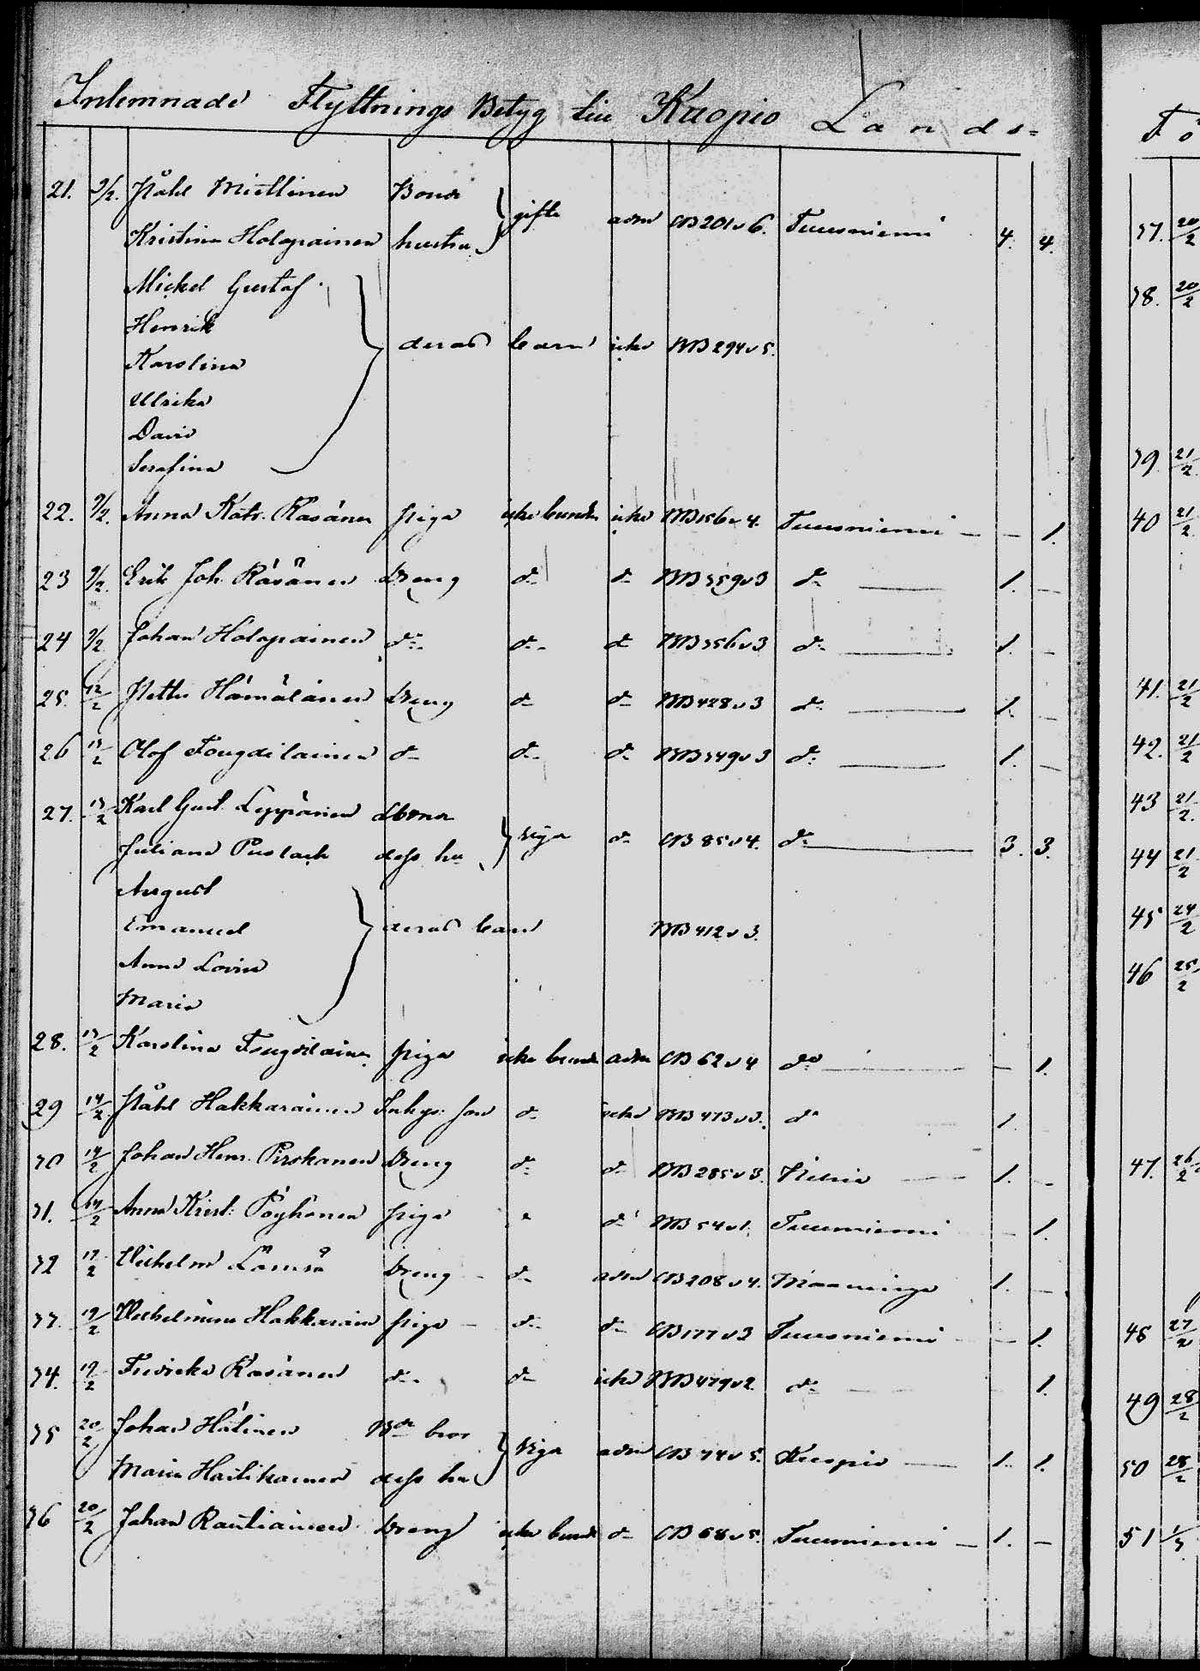 Inlemnade Flyttnings Betyg till Kuopio Lands-
21. 9/2. Påhl Miettinen Bonde
gifte adm CB 201 v 6. Tuusniemi 4. 4.
Kristina Holopainen hustru
Mickel Gustaf
Henrik
deras barn icke BB 294 v 5.
Karolina
Ulrika
David
Serafina
22. 9/2. Anna Katr. Räsänen piga icke bunden icke BB 156 v 4. Tuusniemi - - 1.
23 9/2. Erik Joh. Räsänen dreng do do BB 359 v 3 do 1. -
24 9/2 Johan Holopainen do do do BB 356 v 3 do 1. -
25. 12/2 Petter Hämäläinen dreng do do BB 428 v 3 do 1. -
26 13/2 Olof Tougdilainen do do do BB 349 v 3 do 1. -
27. 13/2 Karl Gust. Leppänen
viga do CB 85 v 4. do 3. 3.
Juliana Puslack dess hu
August
Emanuel deras barn BB 412 v 3.
Anna Lovisa
Maria
28. 13/2 Karolina Tougdilainen piga icke bunden adm CB 62 v 4 do - 1.
29 14/2 Påhl Hakkarainen Inhys. son do icke BB 473 v 3. do 1.
30 14/2 Johan Henr. Pirskanen dreng do do BB 285 v 3. 1. -
31. 14/2 Anna Krist: Pöyhönen piga do BB 54 v 1. Tuusniemi - 1.
32 17/2 Wilhelm Lämsä dreng - do adm CB 208 v 4. Maaninga 1. -
33. 19/2 Wilhelmina Hakkarain piga - do do CB 177 v 3 Tuusniemi - 1.
34. 19/2 Fredrika Räsänen do do icke BB 479 v 2. do 1.
35 20/2 Johan
viga adm CB 74 v 5. Kuopio 1. 1.
Maria dess hu
36 20/2 Johan Rautiainen dreng icke bunden do CB 68 v 5. Tuusniemi - 1. -
37. 20/2
38. 20/2
39 21/2
40 21/2
41. 21/2
42. 21/2
43 21/2
44 21/2
45 24/2
46 25/2
47. 26/2
48 27/2
49 28/2
50 28/2
51 1/3